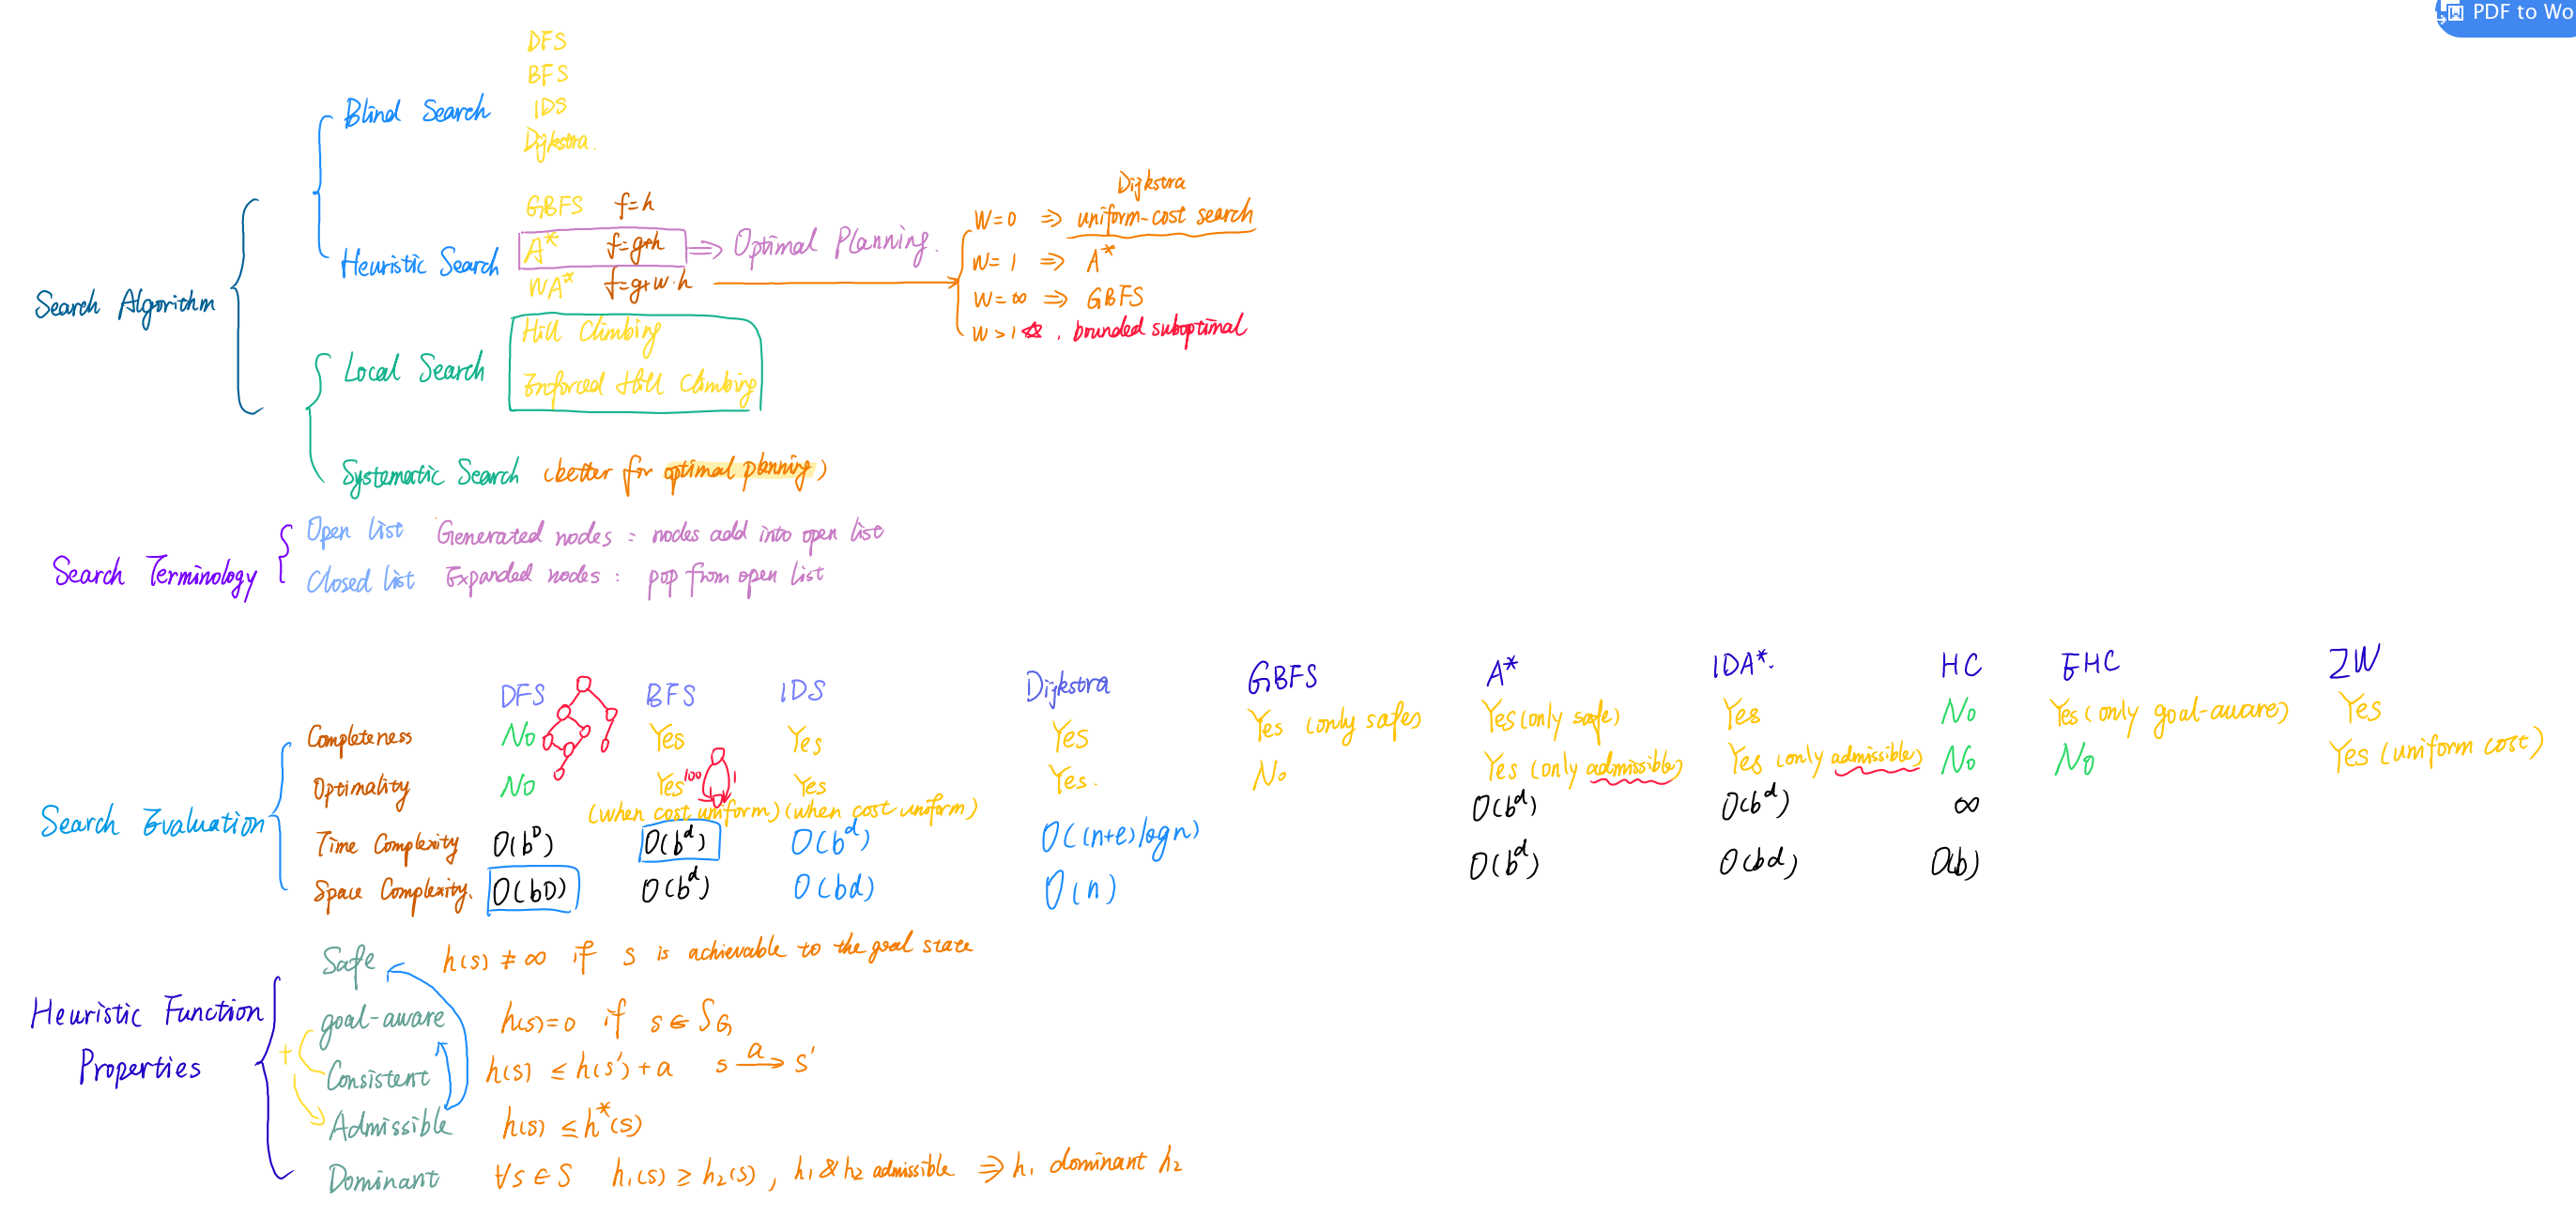 PDF to Wo
Search Algorithm
Blind Search
DFS
BFS
IDS
Dijkstra.
Heuristic Search
GBFS f=h
A* f=g+h ⇒ Optimal Planning.
WA* f=g+w·h
W=0 ⇒ uniform-cost search
Dijkstra
W=1 ⇒ A*
W=∞ ⇒ GBFS
W>1 ☆. bounded suboptimal
Local Search
Hill Climbing
Enforced Hill Climbing
Systematic Search (better for optimal planning)
Search Terminology
Open list Generated nodes: nodes add into open list
Closed list Expanded nodes: pop from open list
Search Evaluation
DFS BFS IDS Dijkstra GBFS A* IDA*. HC EHC IW
Completeness No Yes Yes Yes Yes (only safe) Yes (only safe) Yes No Yes (only goal-aware) Yes
Optimality No Yes 100 1 Yes Yes. No Yes (only admissible) Yes (only admissible) No No Yes (uniform cost)
(when cost uniform) (when cost uniform)
Time Complexity O(b^D) O(b^d) O(b^d) O((n+e)logn) O(b^d) O(b^d) ∞
Space Complexity. O(bD) O(b^d) O(bd) O(n) O(b^d) O(bd) O(b)
Heuristic Function
Properties
Safe h(s) ≠ ∞ if s is achievable to the goal state
goal-aware h(s)=0 if s∈S_G
+
Consistent h(s) ≤ h(s')+a s a→ s'
Admissible h(s) ≤ h*(s)
Dominant ∀s∈S h₁(s) ≥ h₂(s), h₁ & h₂ admissible ⇒ h₁ dominant h₂